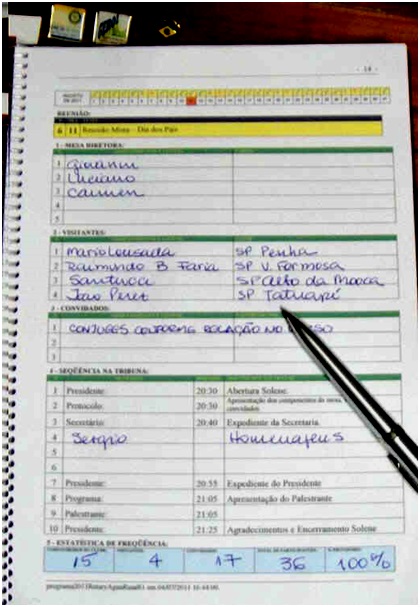 - 14 -
AGOSTO
DE 2011
REUNIÃO:
6 11 Reunião Mista - Dia dos Pais
1 - MESA DIRETORA:
1 Giovanni
2 Luciano
3 Carmen
4
5
2 - VISITANTES:
1 Mario Lousada SP Penha
2 Raimundo B Faria SP V. Formosa
3 Santucci SP Alto da Mooca
4 Joao Perez SP Tatuapé
3 - CONVIDADOS:
1 CONJUGES CONFORME RELAÇÃO NO VERSO
2
3
4 - SEQÜÊNCIA NA TRIBUNA:
1 Presidente: 20:30 Abertura Solene.
2 Protocolo: 20:30 Apresentação dos componentes da mesa, convidados.
3 Secretário: 20:40 Expediente da Secretaria.
4 Sergio Homenagens
5
6
7 Presidente: 20:55 Expediente do Presidente
8 Programa: 21:05 Apresentação do Palestrante
9 Palestrante: 21:05
10 Presidente: 21:25 Agradecimentos e Encerramento Solene
5 - ESTATÍSTICA DE FREQÜÊNCIA:
15 4 17 36 100%